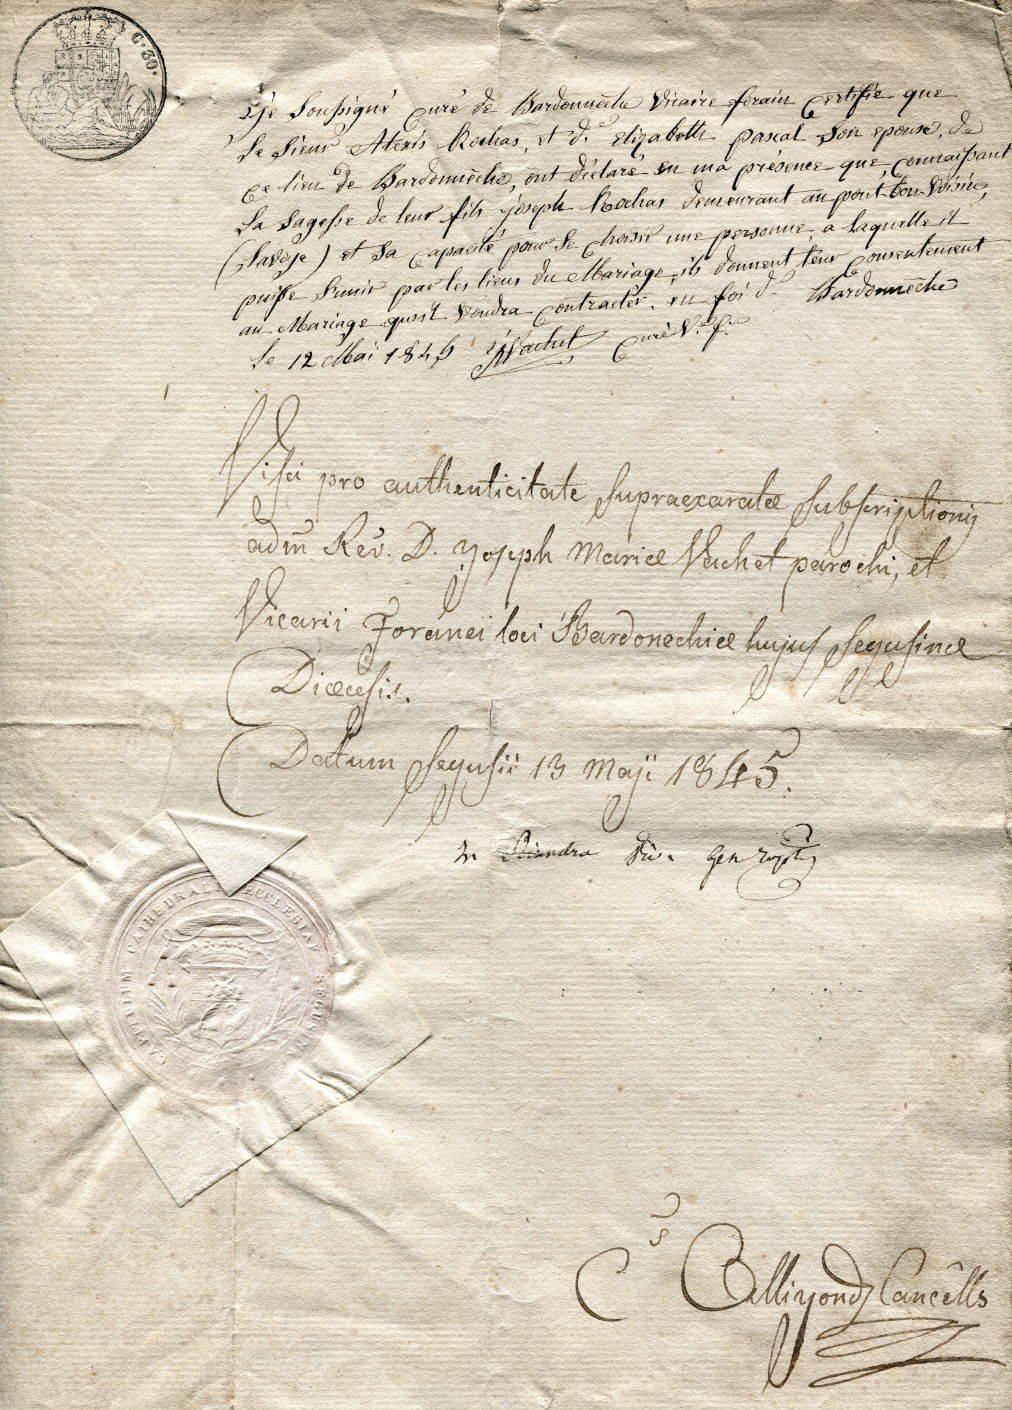 C. 30.
Je soussigné curé de Bardonnêche Vicaire forain certifie que
le sieur Alexis Rochas, et d.e Elizabeth pascal son epouse, de
ce lieu de Bardonnêche, ont déclaré en ma présence que, connaissant
la sagesse de leur fils joseph Rochas demeurant au pont-bon-voisin,
(Savoje) et sa capacité pour se choisir une personne, a laquelle il
puisse s'unir par les liens du Mariage, ils donnent leur consentement
au Mariage qu'il voudra contracter. en foi d. Bardonnêche
le 12 Mai 1845 Vachet curé V.e f.n
Visa pro authenticitate supraexaratæ subscriptionis
adm Rev. D. Joseph Mariæ Vachet parochi, et
Vicarii Foranei loci Bardonechiæ hujus segusinæ
Diœcesis.
Datum segusii 13 Maji 1845.
Vic. Gen
CAPITULUM CATHEDRAL ECCLESIAE SEGUSINAE
Cancells